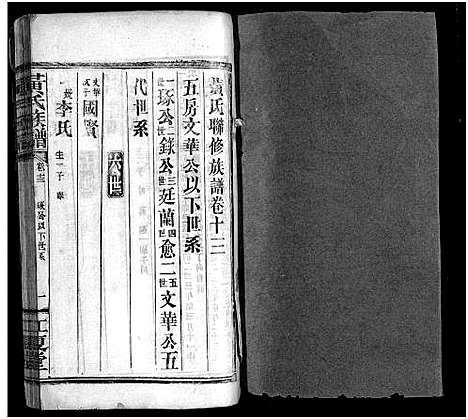 黃氏聯修族譜卷十三
五房文華公以下世系
一世琢公二世錄公三世廷蘭四世愈二五世文華公五
代世系
六世
文華長子國賢
娶李氏
生一子
黃氏族譜
卷十三
琢公以下世系
一
江夏堂